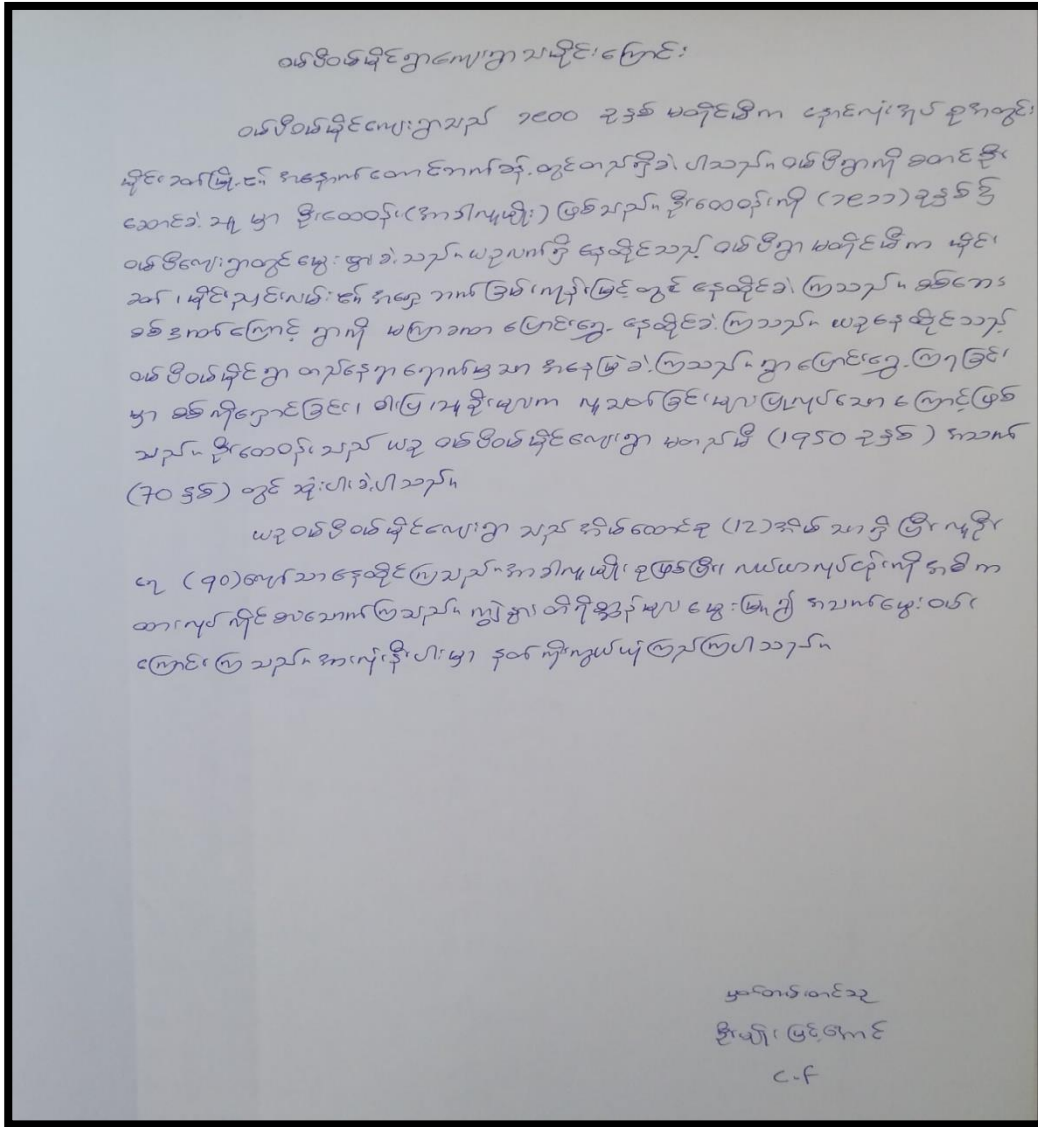 ဝမ်ပီဝမ်မိုင်ရွာကျေးရွာ သမိုင်းကြောင်း
ဝမ်ပီဝမ်မိုင်ကျေးရွာသည် ၁၉၀၀ ခုနှစ် မတိုင်မီက နောင်လုံးအုပ်စုအတွင်း
မိုင်းခတ်မြို့၏ အနောက်တောင်ဘက်ခန့်တွင်တည်ရှိခဲ့ပါသည်။ ဝမ်ပီရွာကို စတင်ဦး
ဆောင်ခဲ့သူ မှာ ဦးထေဝန်း(အာခါလူမျိုး) ဖြစ်သည်။ ဦးထေဝန်းကို (၁၉၁၁) ခုနှစ်၌
ဝမ်ပီကျေးရွာတွင်မွေးဖွားခဲ့သည်။ ယခုလက်ရှိ နေထိုင်သည့် ဝမ်ပီရွာ မတိုင်မီက မိုင်း
ခတ်၊ မိုင်းညင်းလမ်း၏ အရှေ့ဘက်ခြမ်းကုန်းမြင့်တွင် နေထိုင်ခဲ့ကြသည်။ စစ်ဘေး
စစ်ဒဏ်ကြောင့် ရွာကို မကြာခဏ ပြောင်းရွှေ့ နေထိုင်ခဲ့ကြသည်။ ယခုနေထိုင်သည့်
ဝမ်ပီဝမ်မိုင်ရွာ တည်နေရာရောက်မှသာ အနေမြဲခဲ့ကြသည်။ ရွာပြောင်းရွှေ့ကြရခြင်း
မှာ စစ်ကိုရှောင်ခြင်း၊ ဓါးပြ၊ သူခိုးများက လူသတ်ခြင်းများပြုလုပ်သောကြောင့်ဖြစ်
သည်။ ဦးထေဝန်းသည် ယခု ဝမ်ပီဝမ်မိုင်ကျေးရွာ မတည်မီ (1950 ခုနှစ်) အသက်
(70 နှစ်) တွင် ဆုံးပါးခဲ့ပါသည်။
ယခုဝမ်ပီဝမ်မိုင်ကျေးရွာ သည် အိမ်ထောင်စု (12) အိမ် သာရှိ ပြီး လူဦး
ရေ (90)ကျော်သာနေထိုင်ကြသည်။ အာခါလူမျိုးစုဖြစ်ပြီး၊ လယ်ယာလုပ်ငန်းကို အဓိက
ထားလုပ်ကိုင်စားသောက်ကြသည်။ ကျွဲ၊နွား တိရိစ္ဆာန်များ မွေးမြူ၍ အသက်မွေးဝမ်း
ကြောင်းကြသည်။ အားလုံးနီးပါးမှာ နတ်ကိုးကွယ်ယုံကြည်ကြပါသည်။
မှတ်တမ်းတင်သူ
ဦးမျိုးမြင့်အောင်
C.F